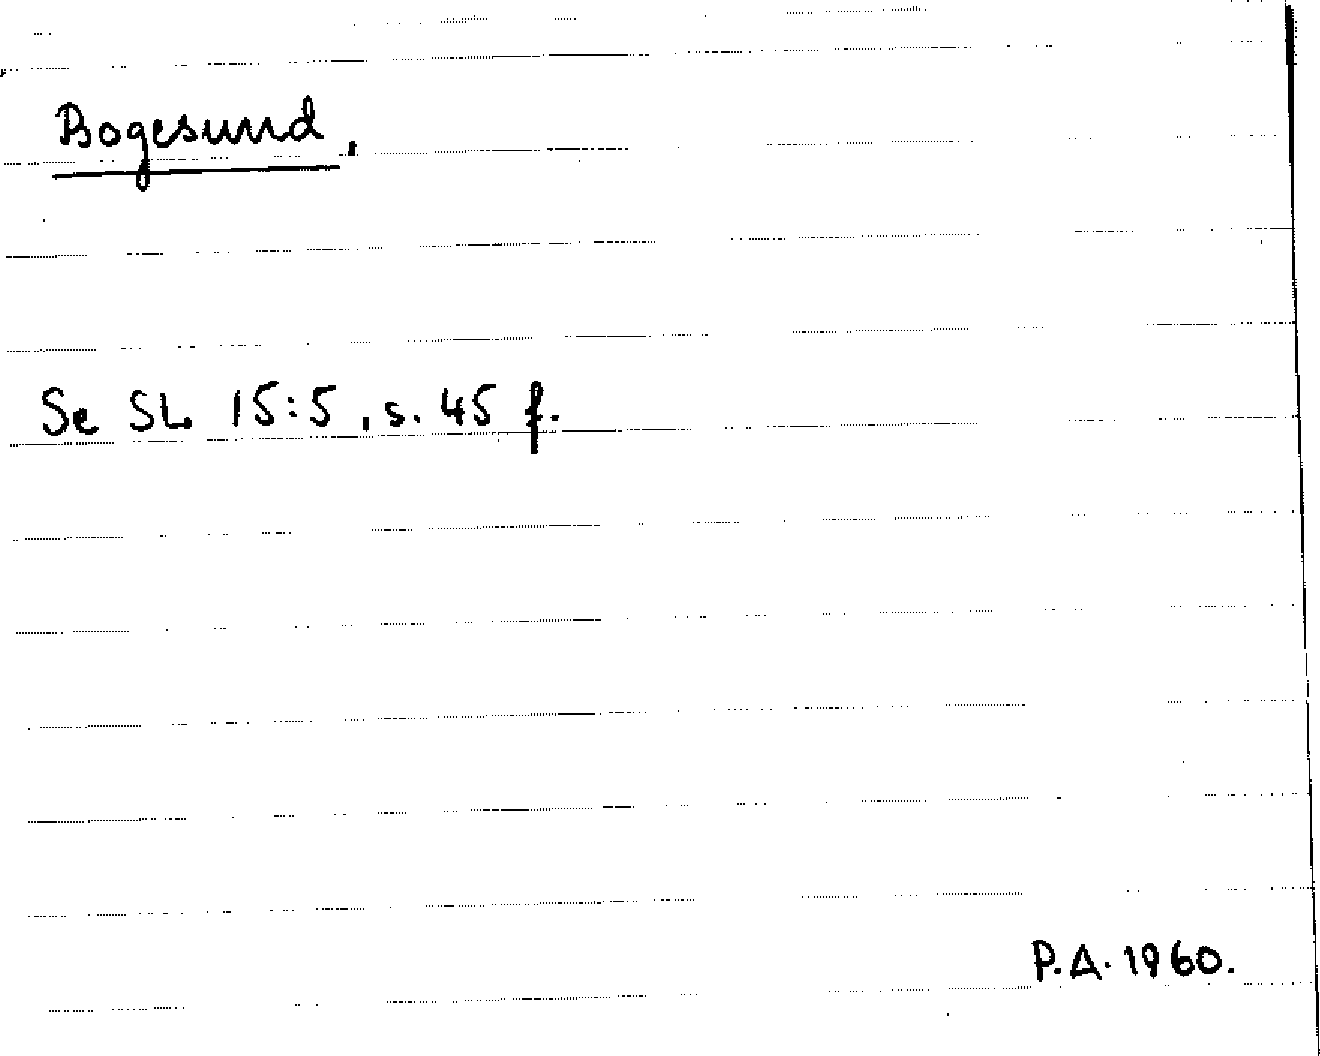 Bogesund.
Se SL 15:5, s. 45 f.
P.A. 1960.